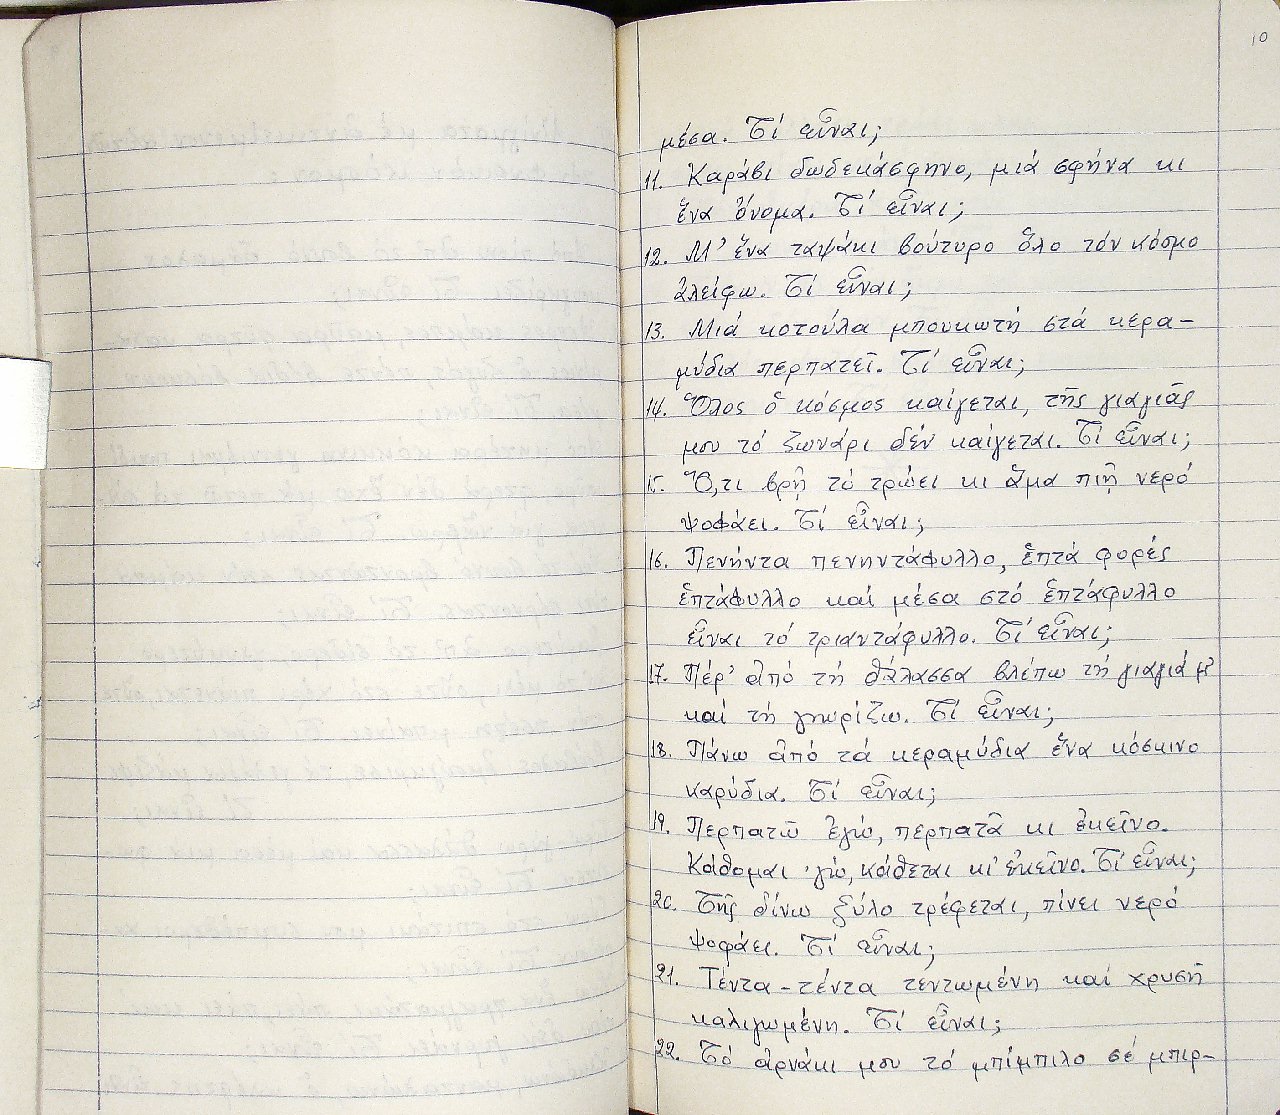 10
μέσα. Τί εἶναι;
11. Καράβι δωδεκάσφηνο, μιά σφήνα κι
ἕνα ὄνομα. Τί εἶναι;
12. Μ' ἕνα ταψάκι βούτυρο ὅλο τόν κόσμο
ἀλείφω. Τί εἶναι;
13. Μιά κοτούλα μπουκωτή στά κερα-
μύδια περπατεῖ. Τί εἶναι;
14. Ὅλος ὁ κόσμος καίγεται, τῆς γιαγιᾶς
μου τό ζωνάρι δέν καίγεται. Τί εἶναι;
15. Ὅ,τι βρῇ τό τρώει κι ἅμα πιῇ νερό
ψοφάει. Τί εἶναι;
16. Πενήντα πενηντάφυλλο, ἑπτά φορές
ἑπτάφυλλο καί μέσα στό ἑπτάφυλλο
εἶναι τό τριαντάφυλλο. Τί εἶναι;
17. Πέρ' ἀπό τή θάλασσα βλέπω τή γιαγιά μ'
καί τή γνωρίζω. Τί εἶναι;
18. Πάνω ἀπό τά κεραμύδια ἕνα κόσκινο
καρύδια. Τί εἶναι;
19. Περπατῶ ἐγώ, περπατᾶ κι ἐκεῖνο.
Κάθομαι 'γώ, κάθεται κι' ἐκεῖνο. Τί εἶναι;
20. Τῆς δίνω ξύλο τρέφεται, πίνει νερό
ψοφάει. Τί εἶναι;
21. Τέντα-τέντα τεντωμένη καί χρυσῆ
καλιγωμένη. Τί εἶναι;
22. Τό ἀρνάκι μου τό μπίμπιλο σέ μπιρ-